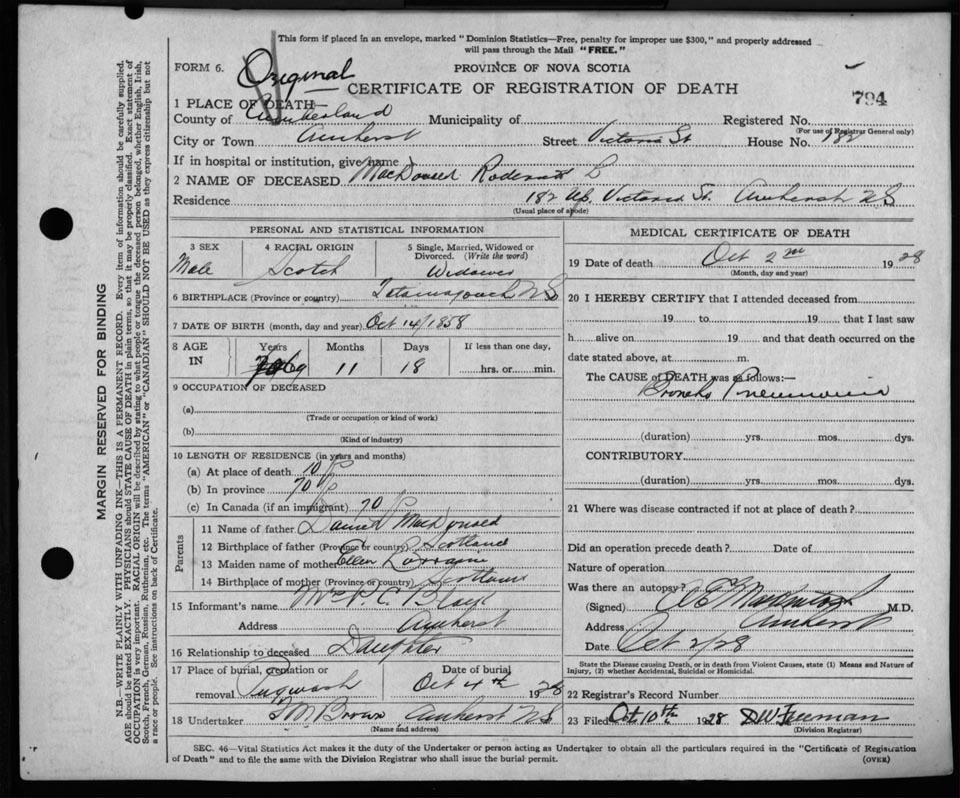 This form if placed in an envelope, marked "Dominion Statistics—Free, penalty for improper use $300," and properly addressed
will pass through the Mail "FREE."
FORM 6.
Original
PROVINCE OF NOVA SCOTIA
CERTIFICATE OF REGISTRATION OF DEATH
794
1 PLACE OF DEATH—
County of Cumberland Municipality of Registered No.
(For use of Registrar General only)
City or Town Amherst Street Victoria St House No. 182
If in hospital or institution, give name
2 NAME OF DECEASED MacDonald Roderick L
Residence 182 Victoria St. Amherst N S
(Usual place of abode)
PERSONAL AND STATISTICAL INFORMATION
3 SEX 4 RACIAL ORIGIN 5 Single, Married, Widowed or Divorced. (Write the word)
Male Scotch Widower
6 BIRTHPLACE (Province or country) Tatamagouch N S
7 DATE OF BIRTH (month, day and year) Oct 14/1858
8 AGE IN Years Months Days If less than one day,
69 11 18 hrs. or min.
9 OCCUPATION OF DECEASED
(a)
(Trade or occupation or kind of work)
(b)
(Kind of industry)
10 LENGTH OF RESIDENCE (in years and months)
(a) At place of death 10
(b) In province 70
(c) In Canada (if an immigrant) 70
Parents
11 Name of father Daniel MacDonald
12 Birthplace of father (Province or country) Scotland
13 Maiden name of mother Ellen
14 Birthplace of mother (Province or country) Scotland
15 Informant's name Mrs
Address Amherst
16 Relationship to deceased Daughter
17 Place of burial, cremation or removal Pugwash Date of burial Oct 4th 1928
18 Undertaker Brown Amherst N S
(Name and address)
MEDICAL CERTIFICATE OF DEATH
19 Date of death Oct 2nd 1928
(Month, day and year)
20 I HEREBY CERTIFY that I attended deceased from
19 to 19 that I last saw
h alive on 19 and that death occurred on the
date stated above, at m.
The CAUSE of DEATH was as follows:—
Broncho Pneumonia
(duration) yrs. mos. dys.
CONTRIBUTORY
(duration) yrs. mos. dys.
21 Where was disease contracted if not at place of death?
Did an operation precede death? Date of
Nature of operation
Was there an autopsy?
(Signed) M.D.
Address Amherst
Date Oct 2/28
State the Disease causing Death, or in death from Violent Causes, state (1) Means and Nature of
Injury, (2) whether Accidental, Suicidal or Homicidal.
22 Registrar's Record Number
23 Filed Oct 10th 1928 DW Freeman
(Division Registrar)
SEC. 46—Vital Statistics Act makes it the duty of the Undertaker or person acting as Undertaker to obtain all the particulars required in the "Certificate of Registration
of Death" and to file the same with the Division Registrar who shall issue the burial permit.
(OVER)
MARGIN RESERVED FOR BINDING
N.B.—WRITE PLAINLY WITH UNFADING INK—THIS IS A PERMANENT RECORD. Every item of information should be carefully supplied.
AGE should be stated EXACTLY. PHYSICIANS should STATE CAUSE OF DEATH in plain terms, so that it may be properly classified. Exact statement of
OCCUPATION is very important. RACIAL ORIGIN will be described by stating to what people or tongue the deceased person belonged, whether English, Irish,
Scotch, French, German, Russian, Ruthenian, etc. The terms "AMERICAN" or "CANADIAN" SHOULD NOT BE USED as they express citizenship but not
a race or people. See instructions on back of Certificate.